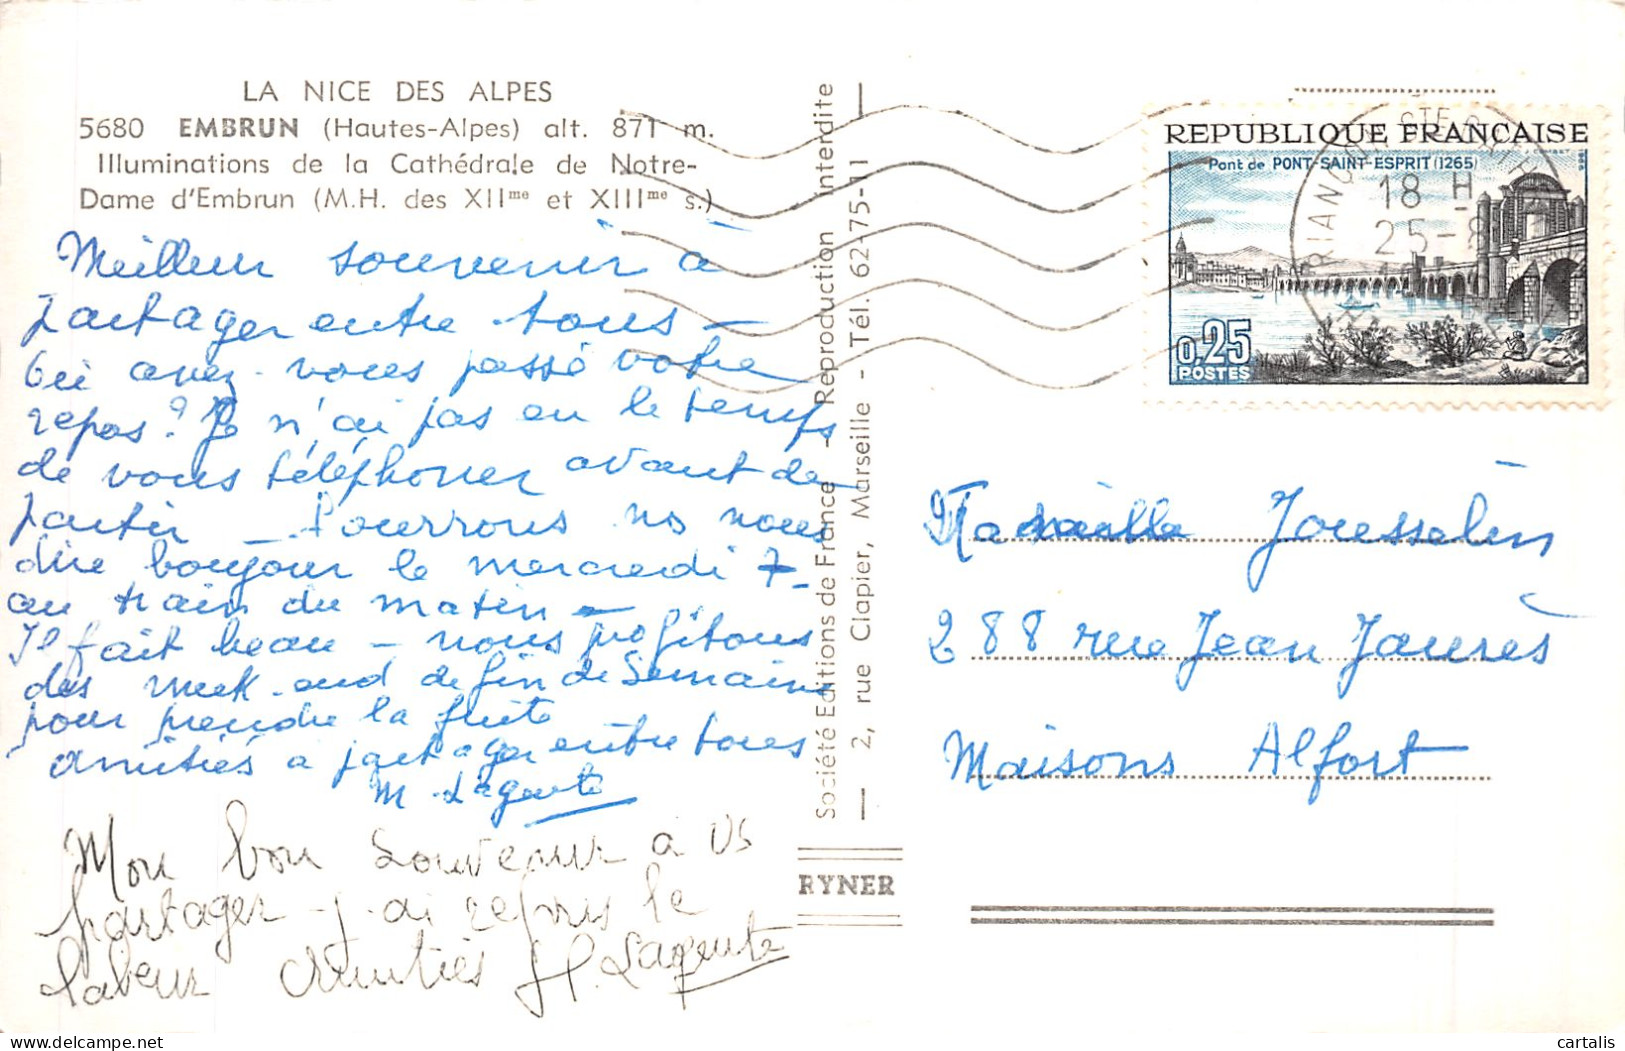 LA NICE DES ALPES
5680 EMBRUN (Hautes-Alpes) alt. 871 m.
Illuminations de la Cathédrale de Notre-
Dame d'Embrun (M.H. des XIIme et XIIIme s.)
Meilleur souvenir à
partager entre tous -
Où avez-vous passé votre
repos? Je n'ai pas eu le temps
de vous téléphoner avant de
partir - Pourrons ns nous
dire bonjour le mercredi 7-
au train du matin -
Il fait beau - nous profitons
des week-end de fin de Semaine
pour prendre la fuite
Amitiés à partager entre tous
M. Lagente
Mon bon souvenir à vs
partager - j'ai repris le
labeur Amitiés H. Lagente
Société Editions de France - Reproduction interdite
2, rue Clapier, Marseille - Tél. 62-75-11
RYNER
REPUBLIQUE FRANÇAISE
Pont de PONT-SAINT-ESPRIT (1265)
0,25
POSTES
18 H
25-8
Jousselin
288 rue Jean Jaurès
Maisons Alfort
cartalis